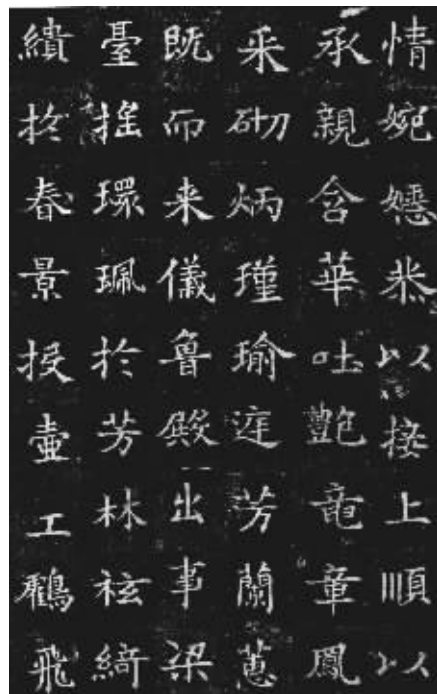 情婉嬺恭以接上順以
承親含華吐艷竜章鳳
采砌炳瑾瑜庭芳蘭蕙
既而来儀魯殿出事梁
臺搖環珮於芳林袨綺
繢於春景投壺工鶴飛